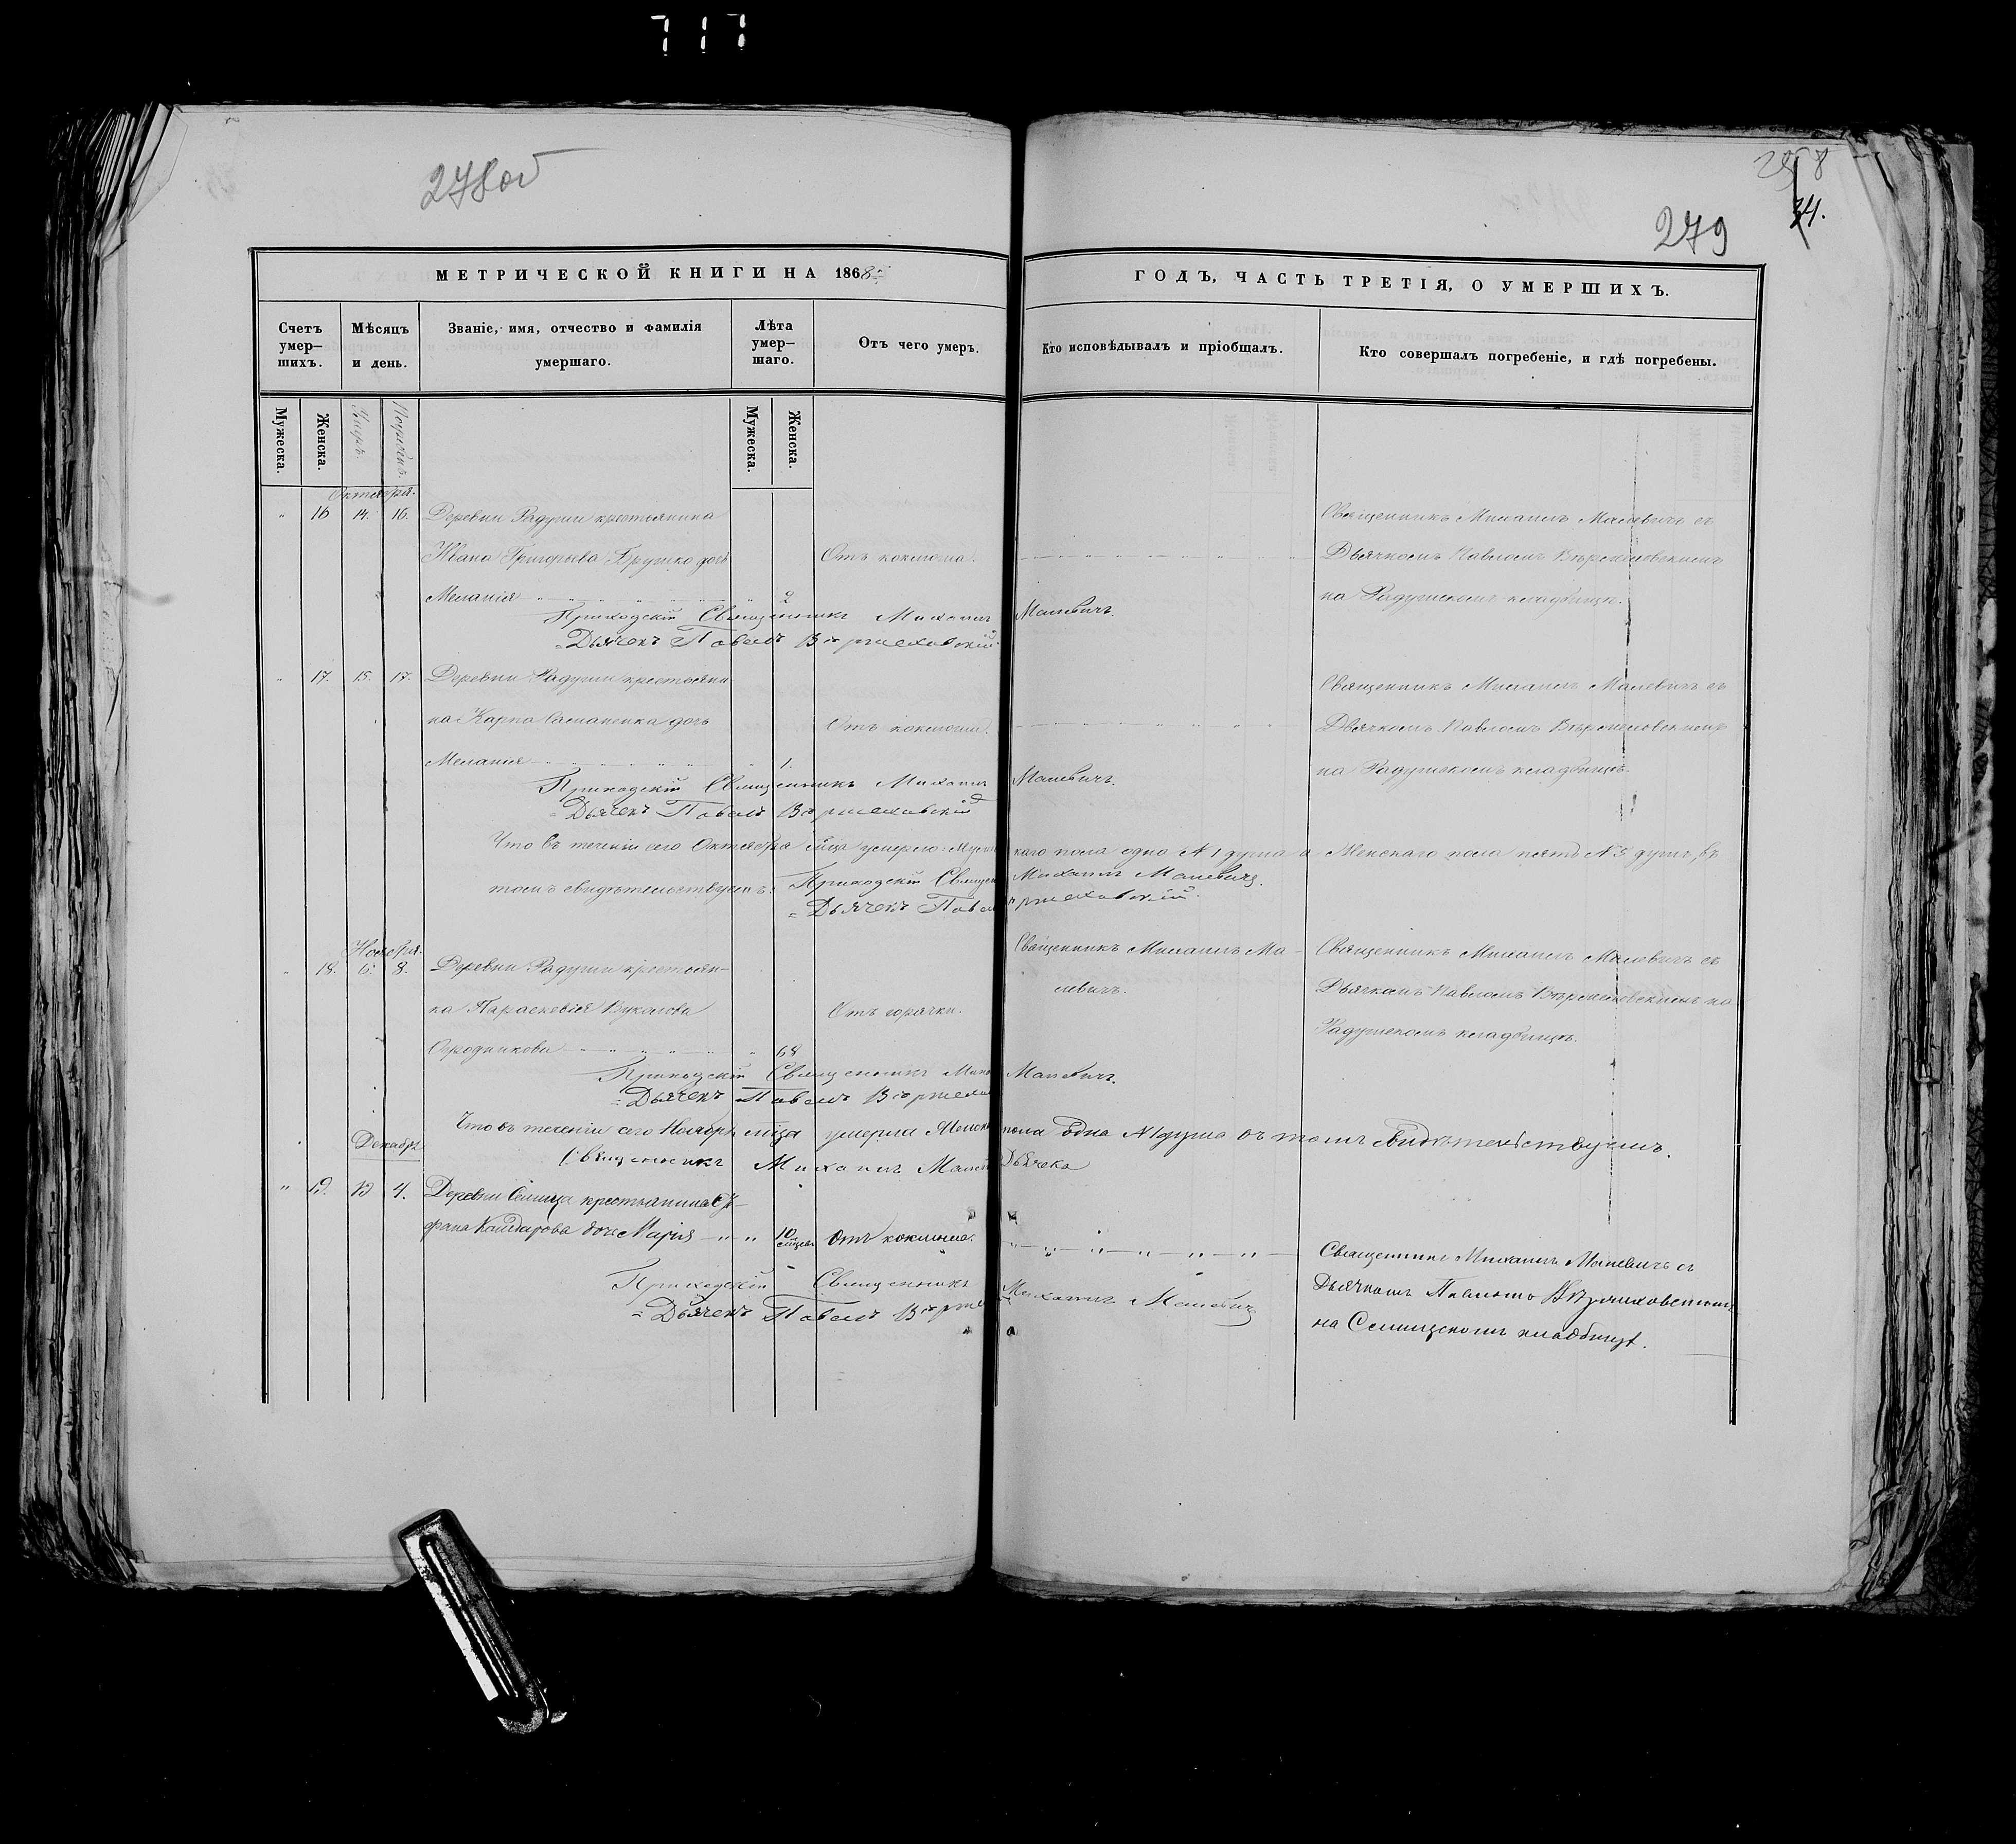 717
278об
258
34.
279
МЕТРИЧЕСКОЙ КНИГИ НА 1868й
ГОДЪ, ЧАСТЬ ТРЕТІЯ, О УМЕРШИХЪ.
Счетъ умер–шихъ.
Мѣсяцъ и день.
Званіе, имя, отчество и фамилія умершаго.
Лѣта умер–шаго.
Отъ чего умеръ.
Кто исповѣдывалъ и пріобщалъ.
Кто совершалъ погребеніе, и гдѣ погребены.
Мужеска.
Женска.
Мужеска.
Женска.
Октября.
" 16 14. 16. Деревни Радуши крестьянина
Священникъ Михаилъ Малевичъ съ
Ивана Григорьева дочь
Отъ коклюша.
Дьячкомъ Павломъ
Меланія " 2
на Радушскомъ кладбищѣ.
Приходскій Священникъ Михаилъ Малевичъ.
=Дьячекъ Павелъ
" 17. 15. 17. Деревни Радуши крестьяни
Священникъ Михаилъ Малевичъ съ
на Карпа дочь
Отъ коклюша.
Дьячкомъ Павломъ
Меланія " 1.
на Радушскомъ кладбищѣ.
Приходскій Священникъ Михаилъ Малевичъ.
=Дьячекъ Павелъ
Что въ теченіи сего Октября мѣца умерло: Мужескаго пола одна № 1 душа а Женскаго пола пять № 5 душъ, въ
томъ свидѣтельствуемъ: Приходскій Священ Михаилъ Малевичъ.
=Дьячекъ Павел
Ноября.
" 18. 6. 8. Деревни Радуши крестьян–
Священникъ Михаилъ Ма–
Священникъ Михаилъ Малевичъ съ
ка Параскевія Вуколова
Отъ горячки.
левичъ.
Дьячкомъ Павломъ на
Огородникова " 68
Радушскомъ кладбищѣ.
Приходскій Священникъ Миха Малевичъ.
=Дьячекъ Павелъ
Что въ теченіи сего Ноября мѣца умерла Женск пола Една № 1 душа въ томъ свидѣтельствуемъ.
Декабря
Священникъ Михаилъ Малев Дьячекъ
" 19. 4. Деревни Селища крестьянина
дочь Марія " " 10 мѣцев Отъ коклюша.
Священникъ Михаилъ Малевичъ съ
Приходскій Священникъ Михаилъ Малевичъ
Дьячкомъ Павломъ
=Дьячекъ Павелъ
на Селищскомъ кладбищѣ.